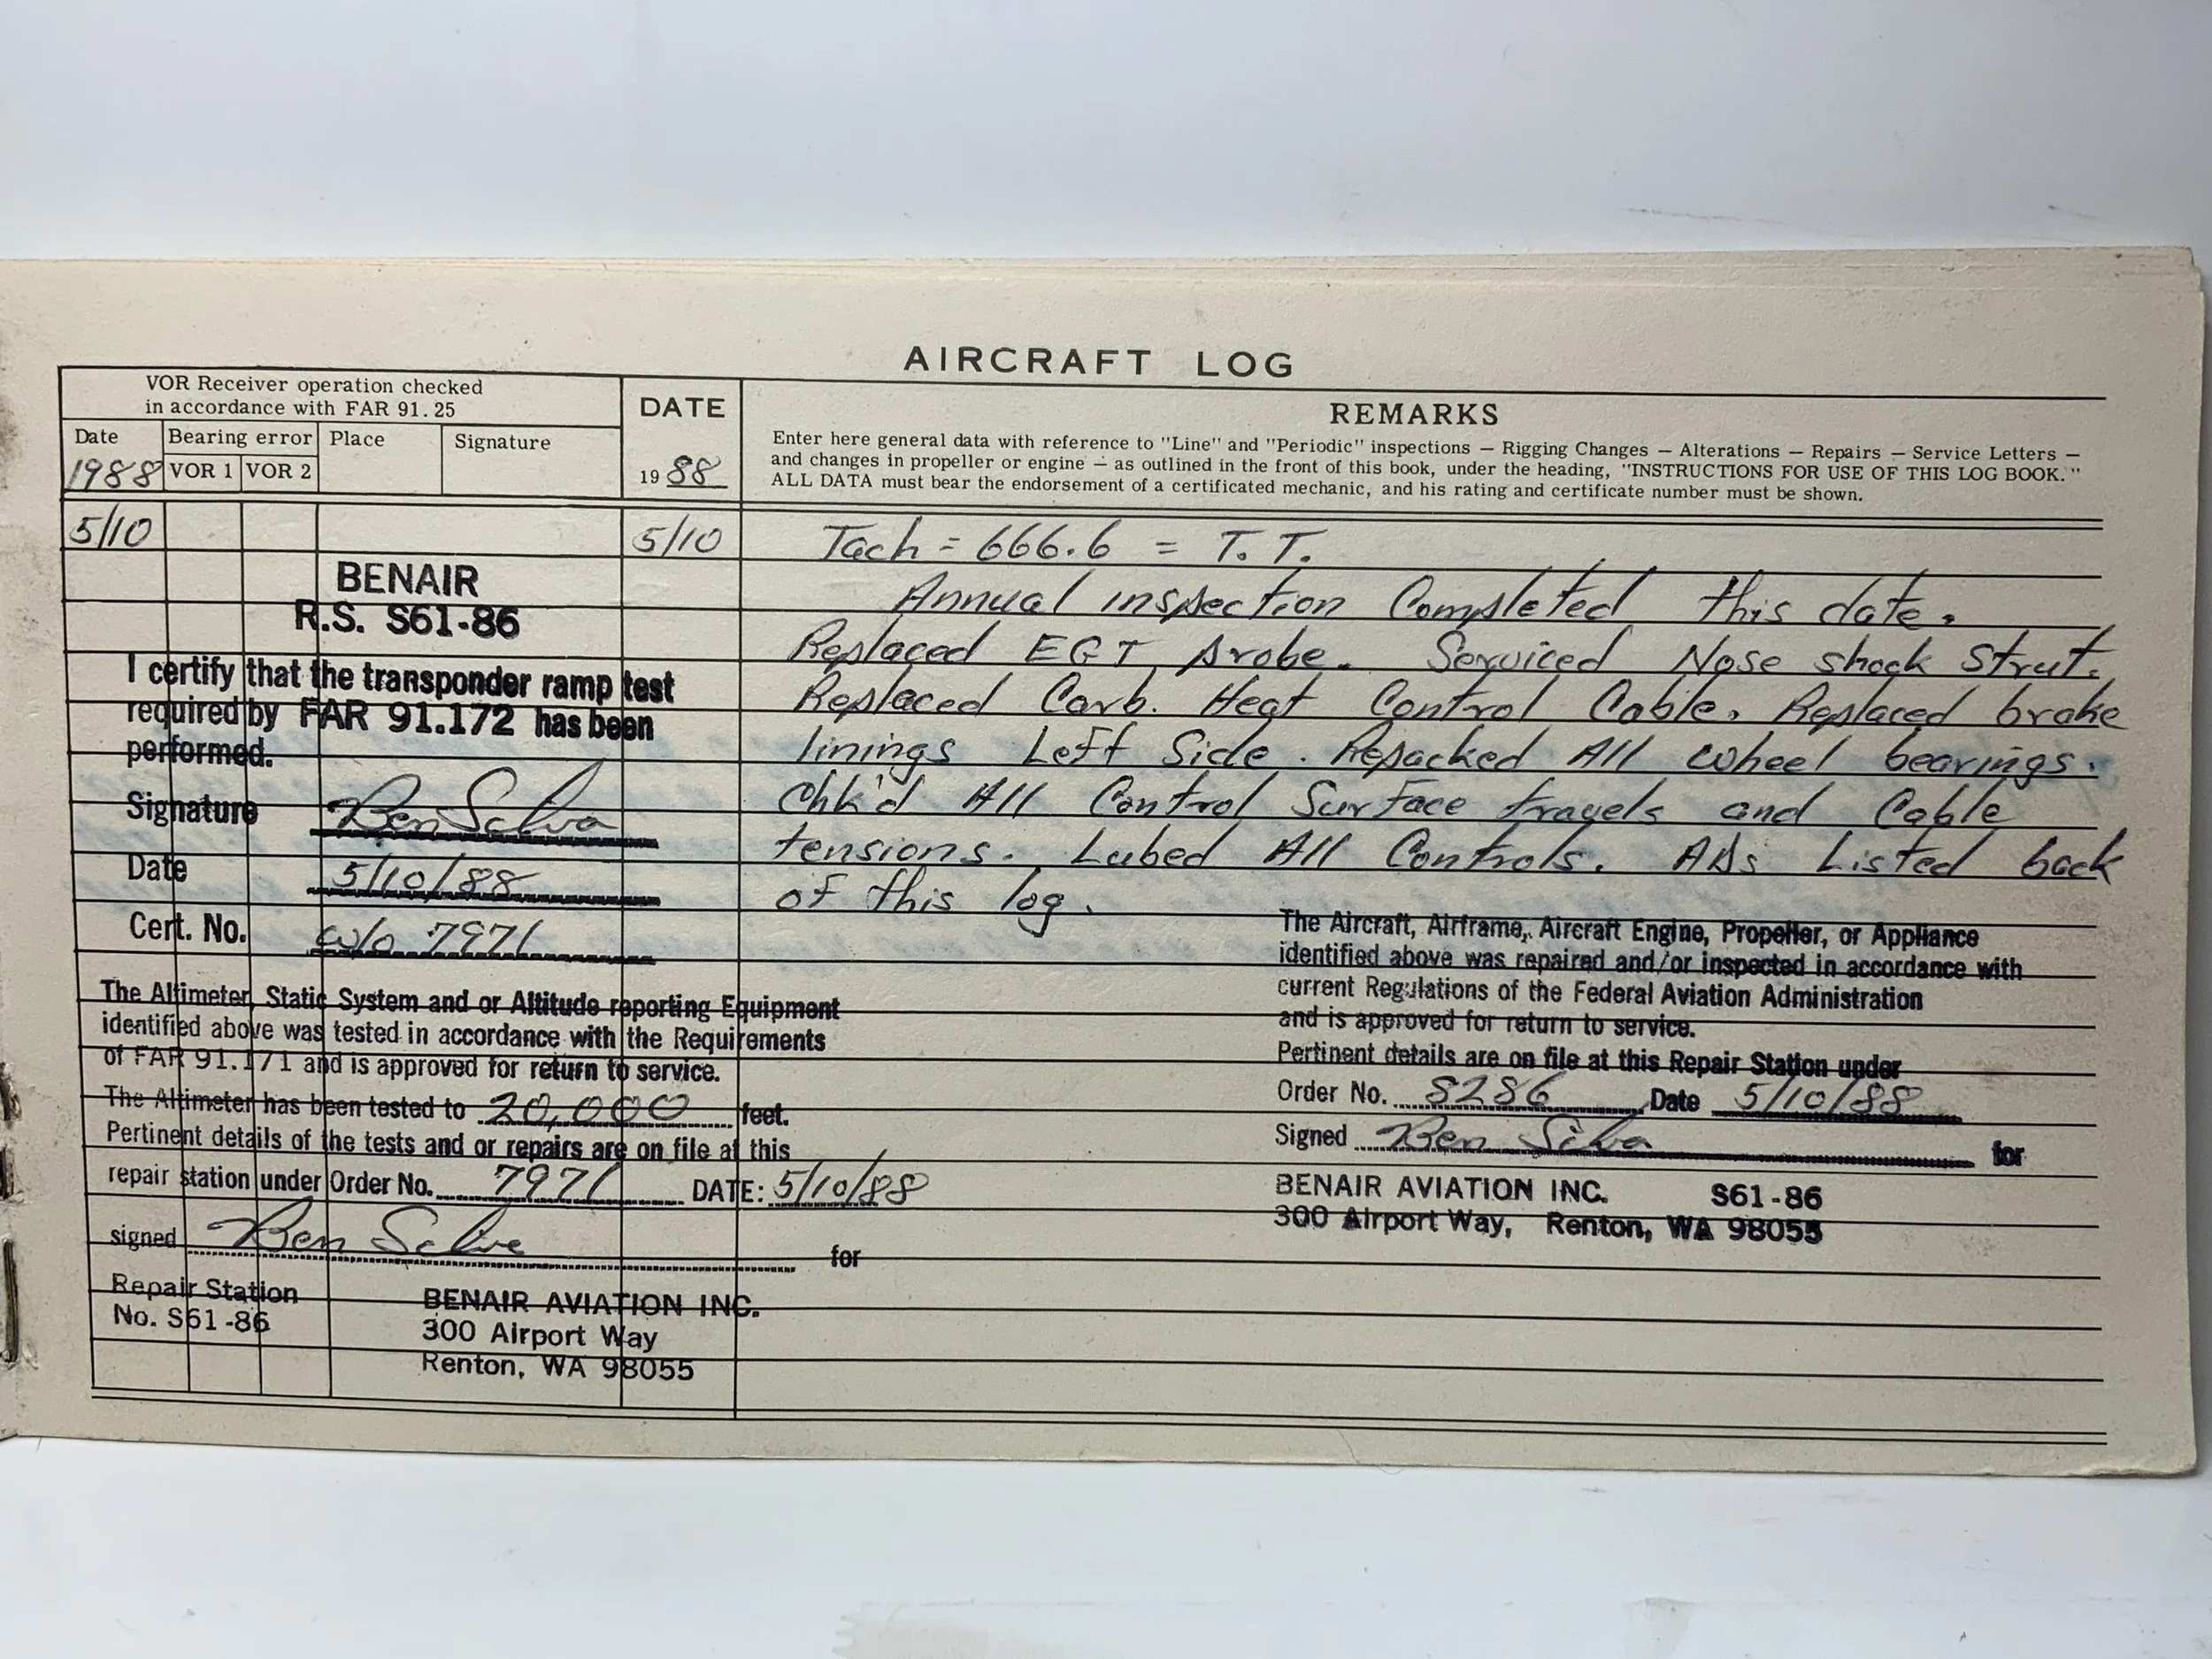 AIRCRAFT LOG
VOR Receiver operation checked
in accordance with FAR 91.25
Date
1988
Bearing error
VOR 1 VOR 2
Place
Signature
DATE
19 88
REMARKS
Enter here general data with reference to "Line" and "Periodic" inspections — Rigging Changes — Alterations — Repairs — Service Letters —
and changes in propeller or engine — as outlined in the front of this book, under the heading, "INSTRUCTIONS FOR USE OF THIS LOG BOOK."
ALL DATA must bear the endorsement of a certificated mechanic, and his rating and certificate number must be shown.
5/10
BENAIR
R.S. S61-86
I certify that the transponder ramp test
required by FAR 91.172 has been
performed.
Signature Ben Silva
Date 5/10/88
Cert. No. w/o 7971
The Altimeter, Static System and or Altitude reporting Equipment
identified above was tested in accordance with the Requirements
of FAR 91.171 and is approved for return to service.
The Altimeter has been tested to 20,000 feet.
Pertinent details of the tests and or repairs are on file at this
repair station under Order No. 7971 DATE: 5/10/88
signed Ben Silva for
Repair Station
No. S61-86
BENAIR AVIATION INC.
300 Airport Way
Renton, WA 98055
5/10
Tach = 666.6 = T.T.
Annual inspection Completed this date.
Replaced EGT probe. Serviced Nose shock strut.
Replaced Carb. Heat Control Cable. Replaced brake
linings Left Side. Repacked All wheel bearings.
Chk'd All Control Surface travels and Cable
tensions. Lubed All Controls. ADs Listed back
of this log.
The Aircraft, Airframe, Aircraft Engine, Propeller, or Appliance
identified above was repaired and/or inspected in accordance with
current Regulations of the Federal Aviation Administration
and is approved for return to service.
Pertinent details are on file at this Repair Station under
Order No. 8286 Date 5/10/88
Signed Ben Silva for
BENAIR AVIATION INC. S61-86
300 Airport Way, Renton, WA 98055